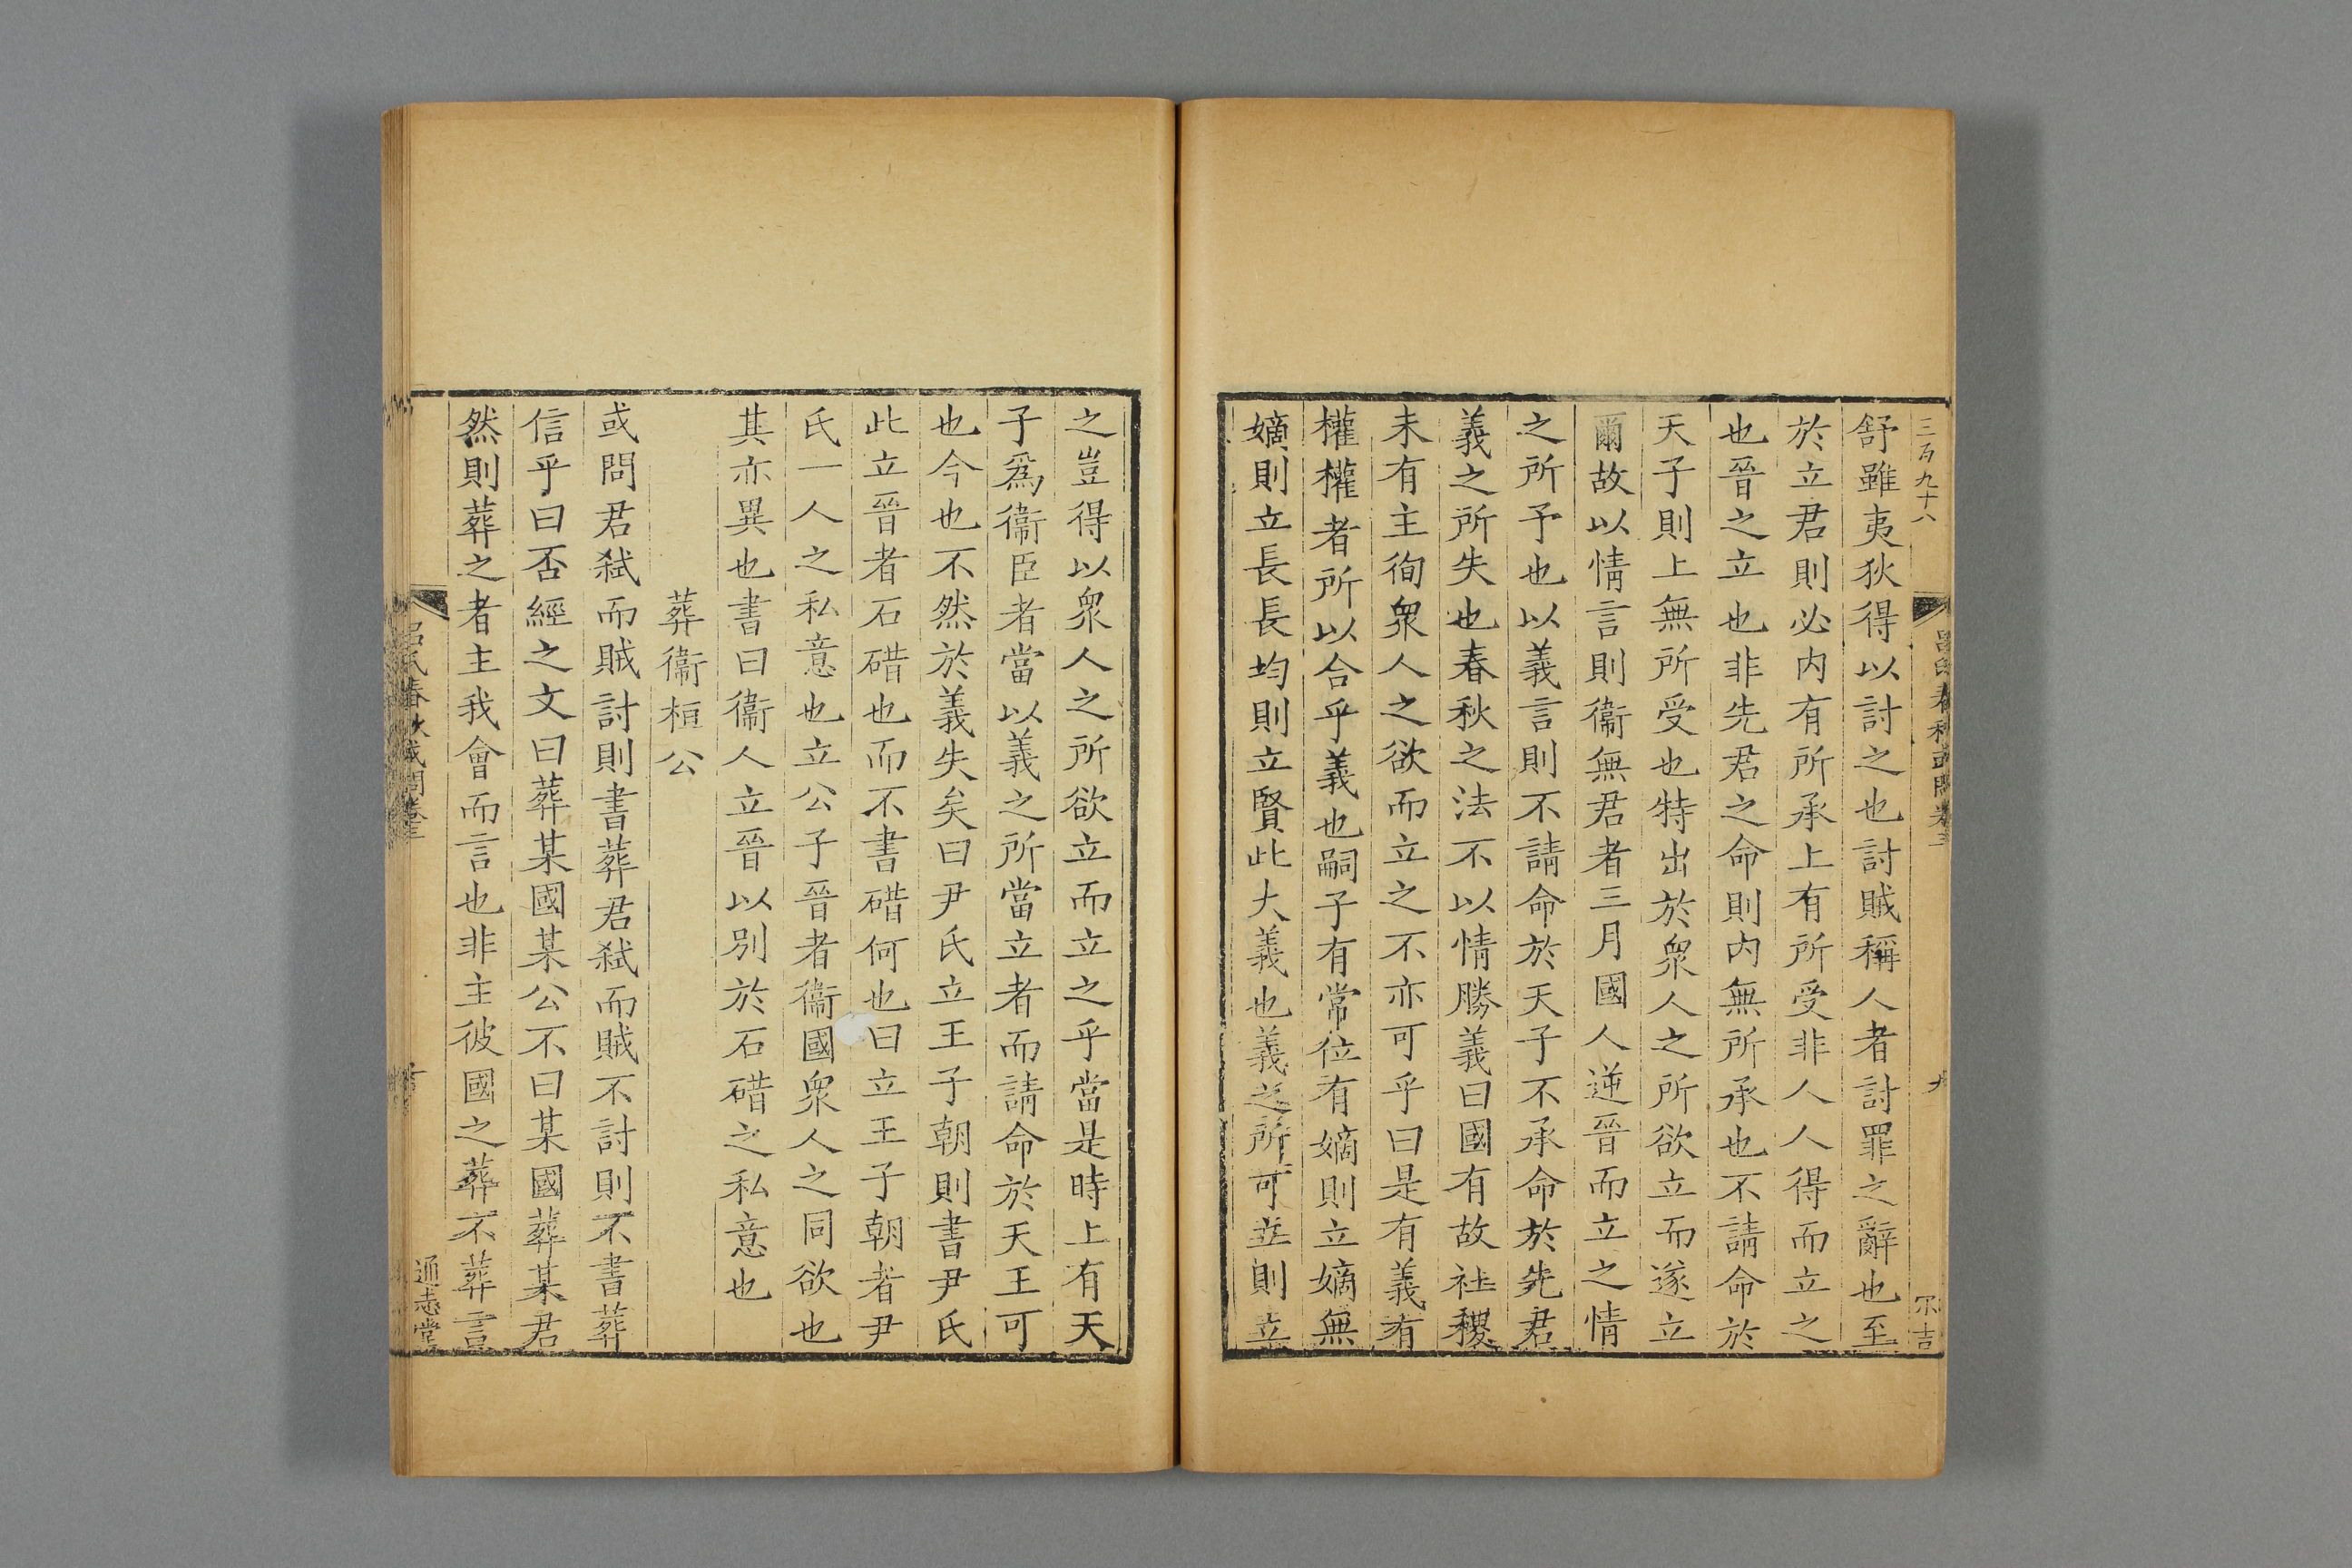 三百九十八
呂氏春秋或問卷三
九
舒雖夷狄得以討之也討賊稱人者討罪之辭也至
於立君則必内有所承上有所受非人人得而立之
也晉之立也非先君之命則内無所承也不請命於
天子則上無所受也特出於衆人之所欲立而遂立
爾故以情言則衞無君者三月國人逆晉而立之情
之所予也以義言則不請命於天子不承命於先君
義之所失也春秋之法不以情勝義曰國有故社稷
未有主徇衆人之欲而立之不亦可乎曰是有義有
權權者所以合乎義也嗣子有常位有嫡則立嫡無
嫡則立長長均則立賢此大義也義之所可立則立
之豈得以衆人之所欲立而立之乎當是時上有天
子爲衞臣者當以義之所當立者而請命於天王可
也今也不然於義失矣曰尹氏立王子朝則書尹氏
此立晉者石碏也而不書碏何也曰立王子朝者尹
氏一人之私意也立公子晉者衞國衆人之同欲也
其亦異也書曰衞人立晉以别於石碏之私意也
葬衞桓公
或問君弑而賊討則書葬君弑而賊不討則不書葬
信乎曰否經之文曰葬某國某公不曰某國葬某君
然則葬之者主我會而言也非主彼國之葬不葬言
呂氏春秋或問卷三
通志堂